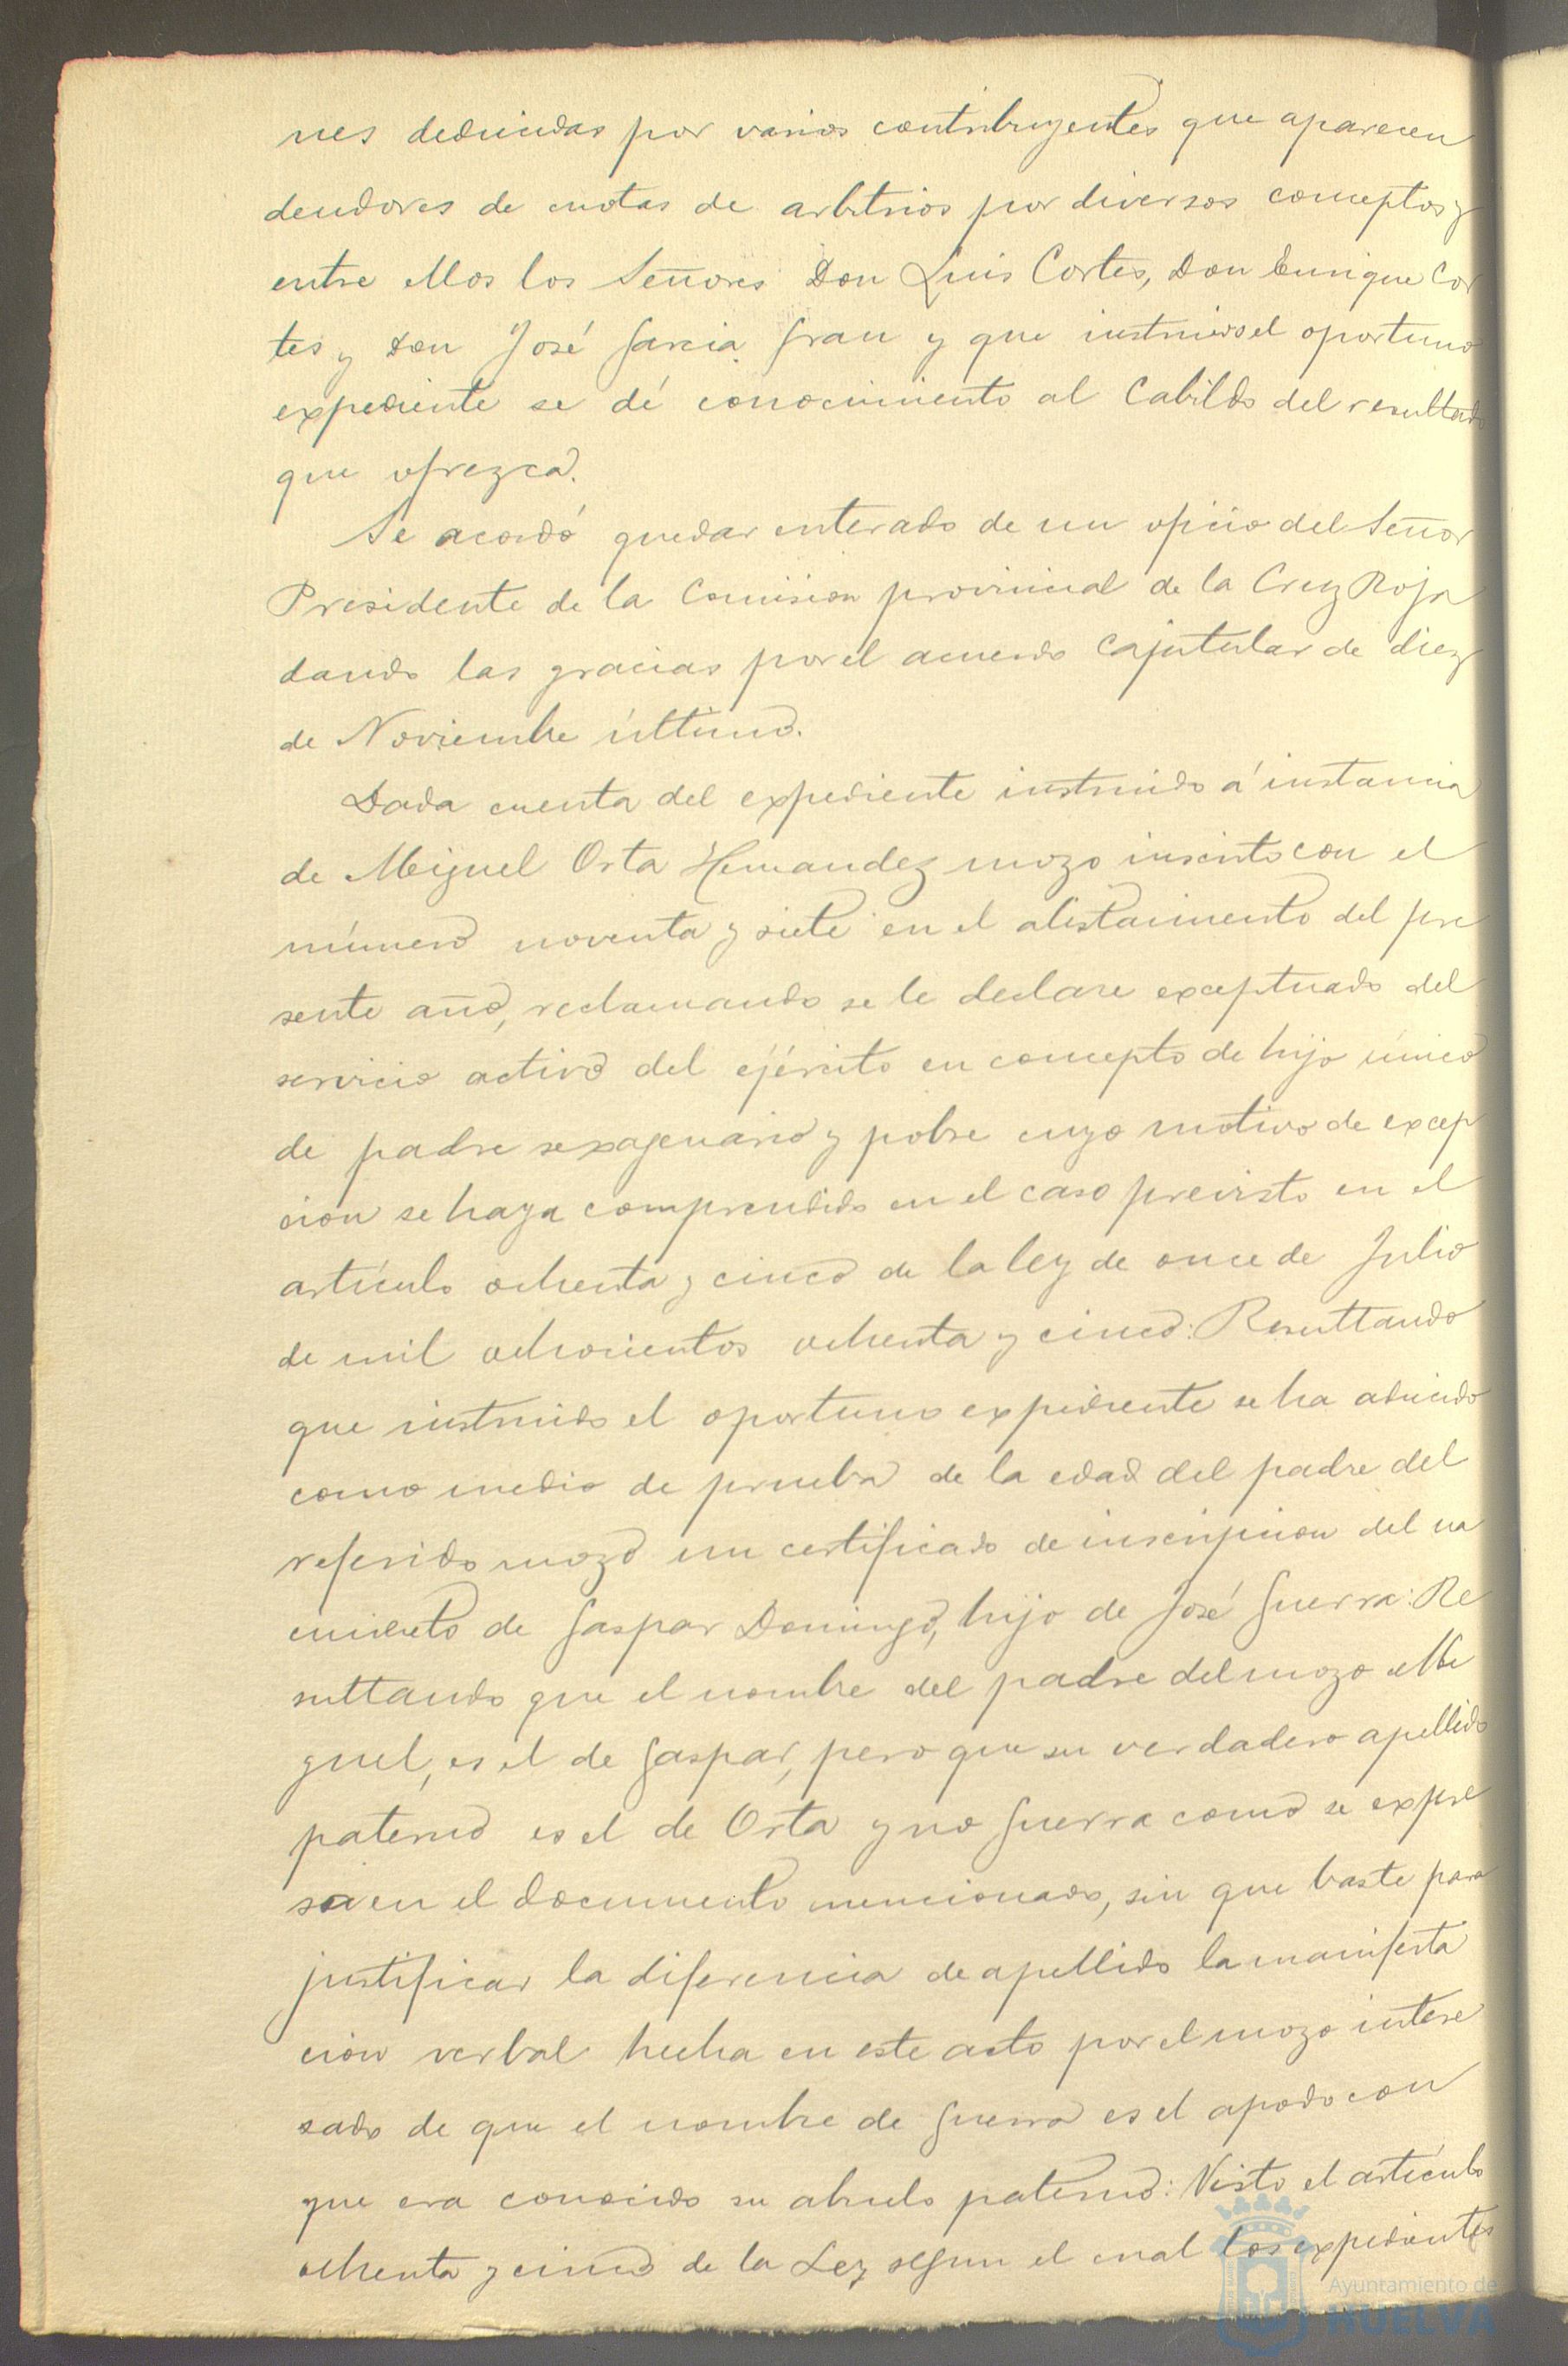 nes deducidas por varios contribuyentes que aparecen
deudores de cuotas de arbitrios por diversos conceptos y
entre ellos los Señores Don Luis Cortes, Don Enrique Cor
tes y Don José Garcia Grau y que instruido el oportuno
expediente se dé conocimiento al Cabildo del resultado
que ofrezca.
Se acordó quedar enterado de un oficio del Señor
Presidente de la Comision provincial de la Cruz Roja
dando las gracias por el acuerdo capitular de diez
de Noviembre último.
Dada cuenta del expediente instruido á instancia
de Miguel Orta Hernandez mozo inscrito con el
número noventa y siete en el alistamiento del pre
sente año, reclamando se le declare exceptuado del
servicio activo del ejército en concepto de hijo único
de padre sexagenario y pobre cuyo motivo de excep
cion se haya comprendido en el caso previsto en el
artículo ochenta y cinco de la ley de once de Julio
de mil ochocientos ochenta y cinco: Resultando
que instruido el oportuno expediente se ha aducido
como medio de prueba de la edad del padre del
referido mozo un certificado de inscripcion del na
cimiento de Gaspar Domingo, hijo de José Guerra: Re
sultando que el nombre del padre del mozo Mi
guel, es el de Gaspar, pero que su verdadero apellido
paterno es el de Orta y no Guerra como se expre
sa en el documento mencionado, sin que baste para
justificar la diferencia de apellido la manifesta
cion verbal hecha en este acto por el mozo intere
sado de que el nombre de Guerra es el apodo con
que era conocido su abuelo paterno: Visto el artículo
ochenta y cinco de la Ley segun el cual los expedientes
Ayuntamiento de
HUELVA